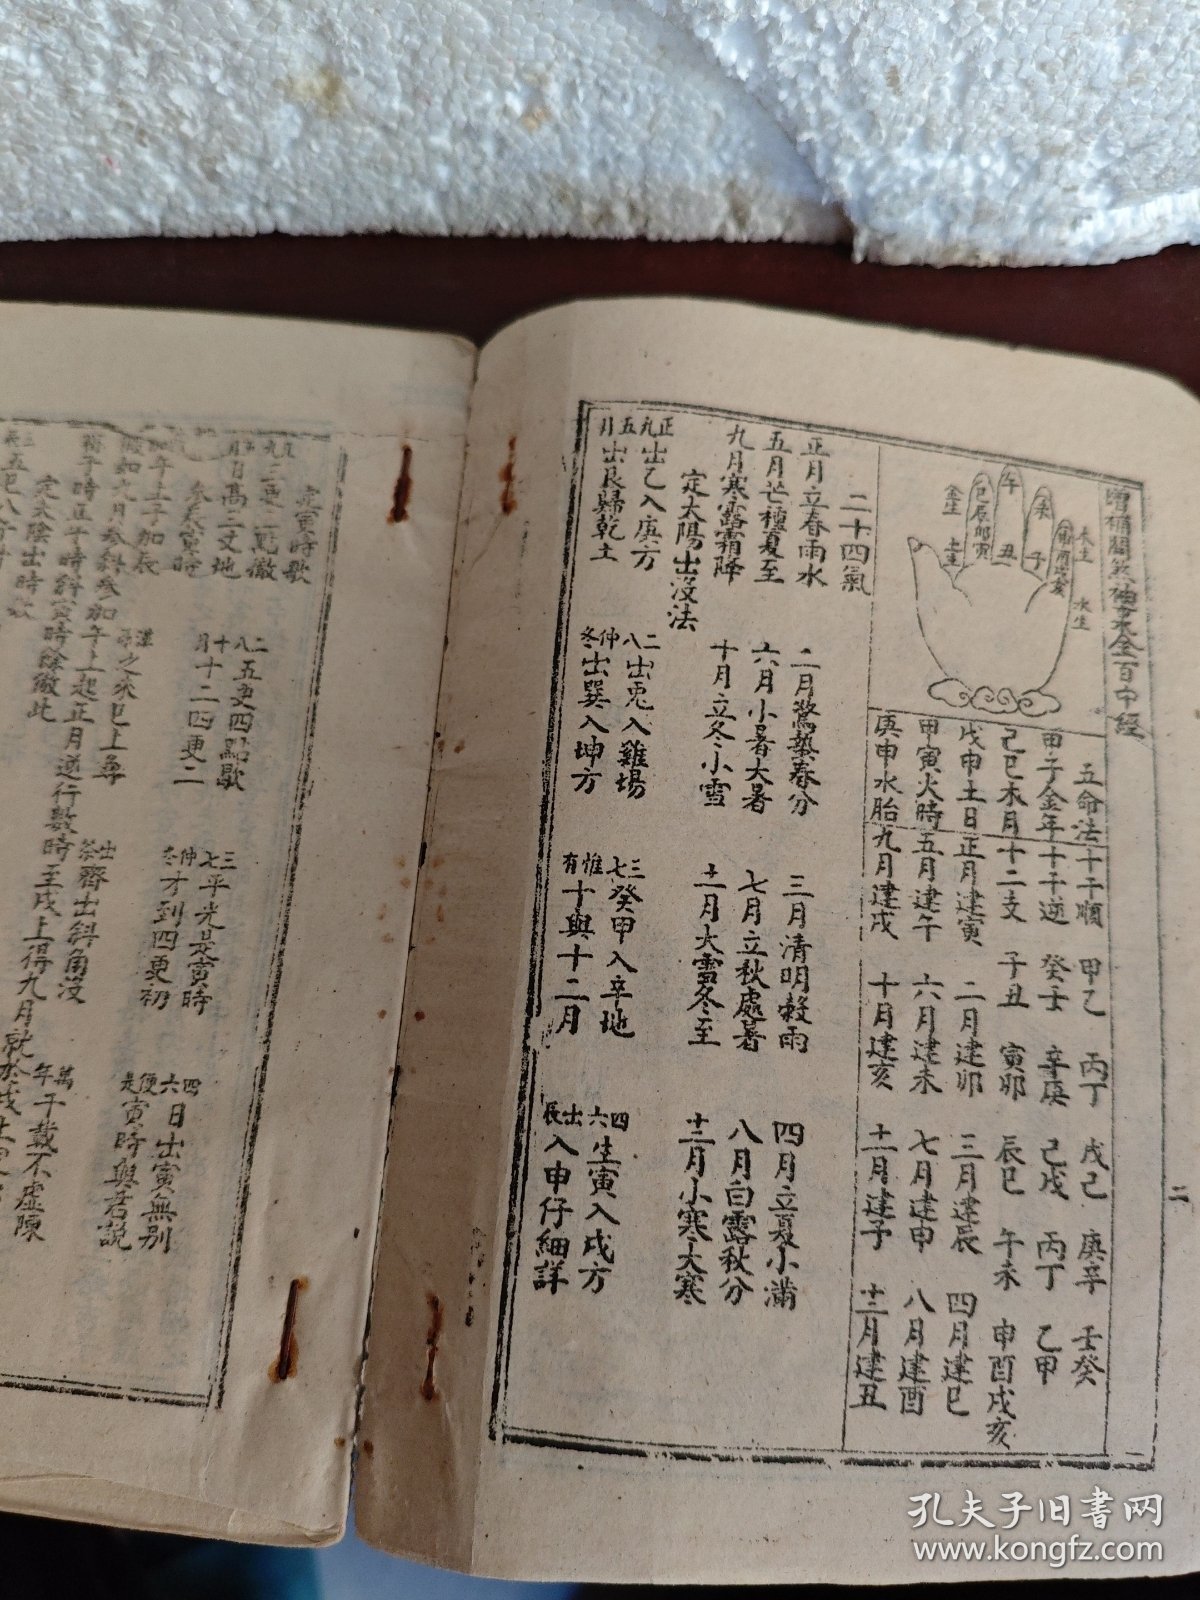 增補關煞袖裏金百中經
二
午
巳辰卯寅
丑
子
金生
土生
木生
水生
五命法
甲子金年
己巳木月
戊申土日
甲寅火時
庚申水胎
十干順 甲乙 丙丁 戊己 庚辛 壬癸
十干逆 癸壬 辛庚 己戊 丙丁 乙甲
十二支 子丑 寅卯 辰巳 午未 申酉戌亥
正月建寅 二月建卯 三月建辰 四月建巳
五月建午 六月建未 七月建申 八月建酉
九月建戌 十月建亥 十一月建子 十二月建丑
二十四氣
正月立春雨水 二月驚蟄春分 三月清明穀雨 四月立夏小滿
五月芒種夏至 六月小暑大暑 七月立秋處暑 八月白露秋分
九月寒露霜降 十月立冬小雪 十一月大雪冬至 十二月小寒大寒
定太陽出沒法
正九出乙入庚方 二八出兎入雞場 三七癸甲入辛地 四六生寅入戌方
五月出艮歸乾土 仲冬出巽入坤方 惟有十與十二月 出辰入申仔細詳
定寅時歌
二八五更四點歇 三七平光是寅時 四六日出寅無別
五月日高三丈地 十月十二四更二 仲冬才到四更初 便是寅時與君說